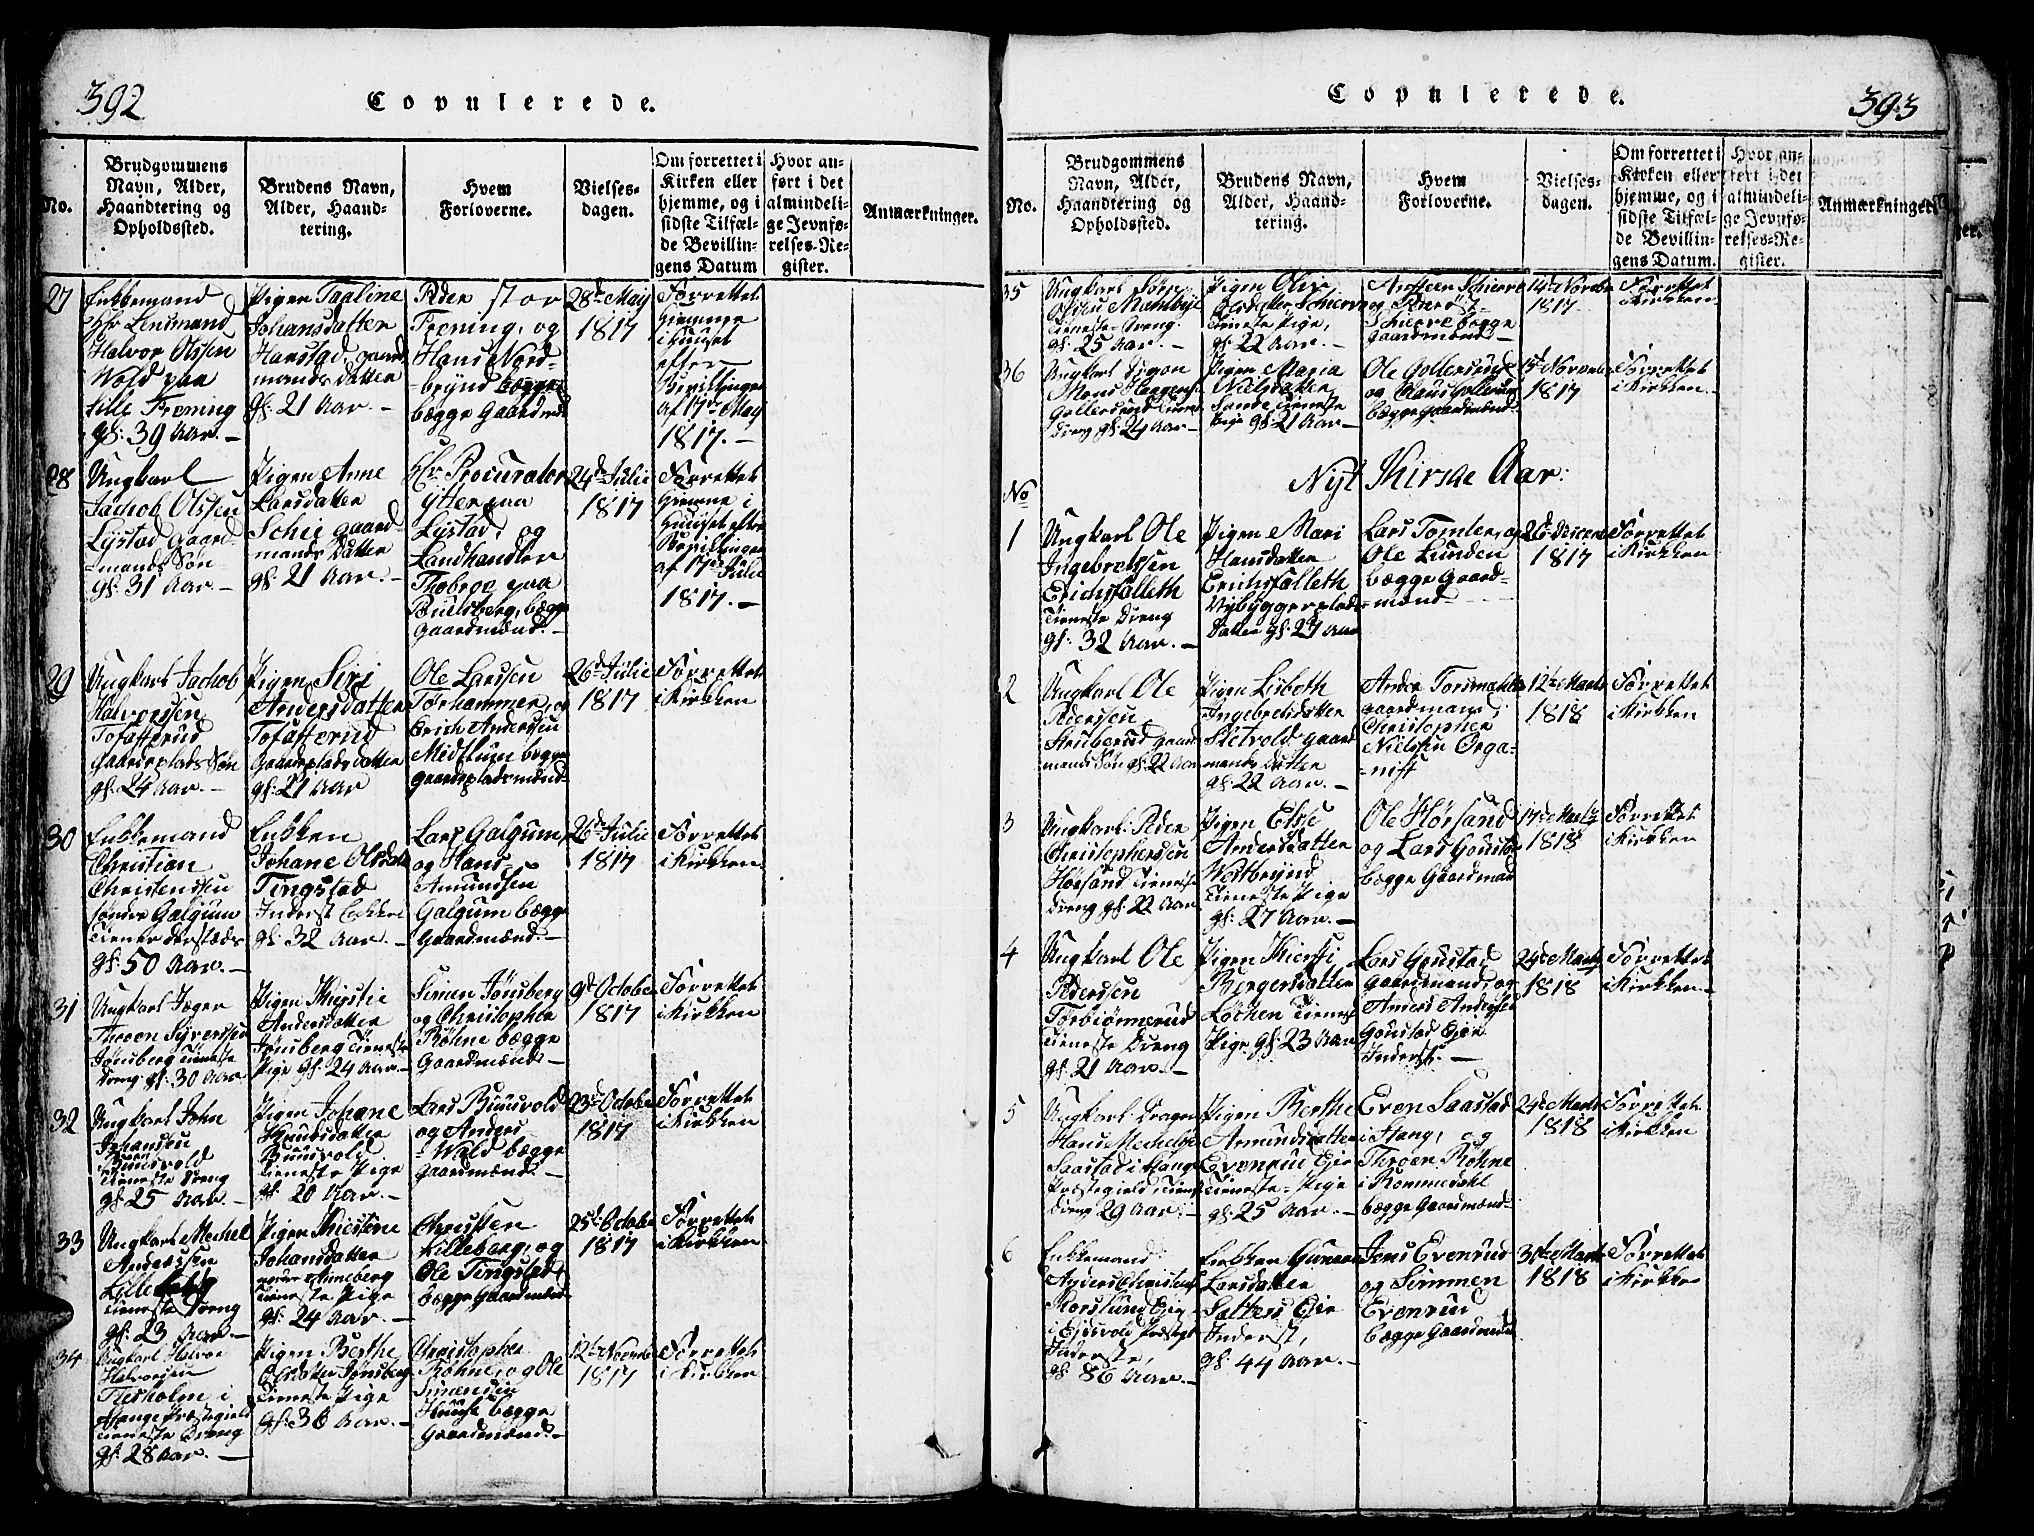 392
Copulerede.
No.
Brudgommens
Navn, Alder,
Haandtering og
Opholdssted.
Brudens Navn,
Alder, Haand-
tering.
Hvem
Forloverne.
Vielses-
dagen.
Om forrettet i
Kirken eller
hjemme, og i
sidste Tilfæl-
de Bevillin-
gens Datum
Hvor an-
ført i det
almindeli-
ge Jevnfø-
relses-Re-
gister.
Anmærkninger.
27
Enkkemand
Hr Lensmand
Halvor Olssen
Wold paa
Lille Frening
gl: 39 Aar. —
Pigen Pauline
Johansdatter
Harstad, gaard
mands Datter
gl: 21 Aar. —
Peder Stor
Frening, og
Hans Nord-
-brynd
bægge Gaardmænd
28de May
1817
Forrettet
Hjemme
i Huuset
efter
Bevillingen
af 17de May
1817. —
28
Ungkarl
Jachob Olssen
Lystad Gaard-
-mands Søn
gl: 31 Aar. —
Pigen Anne
Larsdatter
Schie Gaard-
mands Datter
gl: 21 Aar. —
Hr Procurator
Ytter paa
Lystad, og
Landhandler
Thobroe paa
bægge
Gaardmænd. —
24de Julie
1817
Forrettet
Hjemme i
Huuset efter
Bevillingen
af 17de Julie
1817. —
29
Ungkarl Jachob
Halvorssen
Tofasterud
Gaardeplads Søn
gl: 24 Aar. —
Pigen Siri
Andersdatter
Tofasterud
Gaardeplads datter
gl: 21 Aar
Ole Larssen
Torhammer, og
Erich Anderssen
Midtlum begge
Gaardepladsmænd
26de Julie
1817
Forrettet
i Kirkken
30
Enkkemand
Christian
Christenssen
Søndre Galgum
Tiener dersteds
gl: 50 Aar. —
Enkken
Johane Olsdatter
Tingstad
Inderst Enkke
gl: 32 Aar. —
Lars Galgum,
og Hans
Amundsen
Galgum bægge
Gaardmænd. —
26de Julie
1817
Forrettet
i Kirkken
31
Ungkarl Jæger
Throen Syverssen
Jønsberg Tieneste
Dreng gl: 30 Aar
Pigen Kirstie
Andersdatter
Jønsberg Tieneste
Pige gl: 24 Aar. —
Simen Jønsberg
og Christopher
Røhne bægge
Gaardmænd —
9de October
1817
Forrettet
i Kirkken
32
Ungkarl John
Johansen
Buusvold
Tieneste Dreng
gl: 25 Aar. —
Pigen Johane
Knudsdatter
Buusvold
Tieneste Pige
gl: 20 Aar. —
Lars Buusvold
og Anders
Wald bægge
Gaardmænd. —
23de October
1817
Forrettet
i Kirkken
33
Ungkarl Mechel
Anderssen
Lilleberg
Tieneste Dreng
gl: 23 Aar —
Pigen Kiestine
Johansdatter
Tieneste Pige
gl: 24 Aar. —
Christen
Lilleberg, og
Ole Tingstad
bægge Gaardmænd
25de October
1817
Forrettet
i Kirkken
34
Ungkarl Halvor
Halvorsen
Fieskolen i
Stange Præstegield
Tieneste Dreng
gl: 28 Aar. —
Pigen Berthe
Jønsberg
Tieneste Pige
gl: 36 Aar. —
Christopher
Røhne, og Ole
Simensen
bægge
Gaardmænd. —
12te November
1817
Forrettet
i Kirkken
Copulerede.
393
No.
Brudgommens
Navn, Alder,
Haandtering og
Opholdssted.
Brudens Navn,
Alder, Haand-
tering.
Hvem
Forloverne.
Vielses-
dagen.
Om forrettet i
Kirken eller
hjemme, og i
sidste Tilfæl-
de Bevillin-
gens Datum.
Hvor an-
ført i det
almindeli-
ge Jevnfø-
relses-Re-
gister.
Anmærkninger.
35
Ungkarl Søren
Olssen Mehlbye
Tieneste-Dreng
gl: 25 Aar. —
Pigen Olive
Schierre
Tieneste Pige,
gl: 22 Aar. —
Schierre
og Peder Ø:
Schierre bægge
Gaardmænd —
14de November
1817
Forrettet
i Kirkken
36
Ungkarl
Mons Haagens
Gollersrud Tieneste
Dreng gl: 24 Aar —
Pigen Maria
Nielsdatter
Sande Tieneste
Pige gl: 21 Aar —
Ole Gollersrud
og Claus Gollersrud
bægge Gaardmænd.
15de November
1817
Forrettet
i Kirkken
Nyt Kirske Aar:
No
1
Ungkarl Ole
Ingebretssen
Erichsfalleth
Tieneste Dreng
gl: 32 Aar. —
Pigen Mari
Hansdatter
Erichsfalleth
Nybyggerplads
Datter gl: 27 Aar
Lars Tomter, og
Ole Lunden
bægge Gaard-
-mænd
26de Decembr
1817
Forrettet
i Kirkken
2
Ungkarl Ole
Pederssen
Struberud Gaard
mands Søn gl: 22 Aar
Pigen Lisbeth
Ingebretsdatter
Sletvold Gaard
mands Datter
gl: 22 Aar. —
Gaardmand,
Christopher
Nielssen Orga-
-nist
12te Marts
1818
Forrettet
i Kirkken
3
Ungkarl Peder
Christopherssen
Hørsand Tieneste
Dreng gl: 22 Aar
Pigen Else
Andersdatter
Westbrynd
Tieneste Pige
gl: 27 Aar. —
Ole Hørsand
og Lars Goustad
bægge Gaardmænd
17de Marts
1818
Forrettet
i Kirkken
4
Ungkarl Ole
Pederssen
Torbiønnerud
Tieneste Dreng
gl: 21 Aar. —
Pigen Kiersti
Børgersdatter
Løchen Tieneste
Pige gl: 23 Aar
Lars Goustad
Gaardmand, og
Anders Anderssen
Goustad Eje
Inderst. —
24de Marts
1818
Forrettet
i Kirkken —
5
Ungkarl Dragon
Hans Mechelsen
Saastad i Stange
Præstegield, Tieneste
Dreng 29 Aar. —
Pigen Berthe
Amundsdatter
Evenrud Eje
Tieneste-Pige
gl: 25 Aar. —
Even Saastad
i Stang, og
Throer Røhne
i Rommedahl
bægge Gaardmænd
24de Marts
1818
Forrettet
i Kirkken
6
Enkkemand
Anders Christens
Korslund Eje
i Ejdsvold Præstgl
Inderste,
gl: 86 Aar. —
Enkken Gunner
Larsdatter
Satters Eje
Inderst,
gl: 44 Aar. —
Jens Evenrud
og Simmen
Evenrud
bægge Gaardmænd
31te Marts
1818
Forrettet
i Kirkke